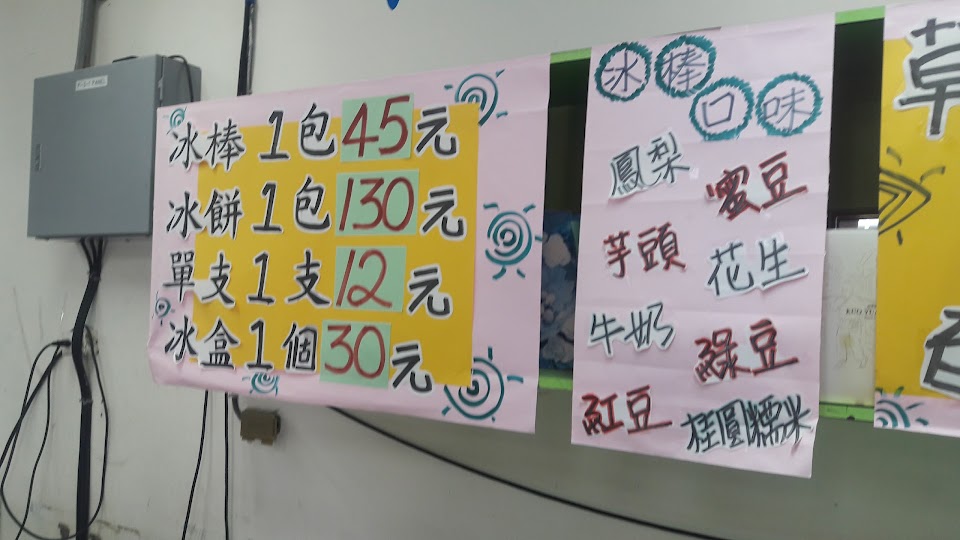 冰棒1包45元
冰餅1包130元
單支1支12元
冰盒1個30元
冰棒
口味
鳳梨
蜜豆
芋頭
花生
牛奶
綠豆
紅豆
桂圓糯米
草